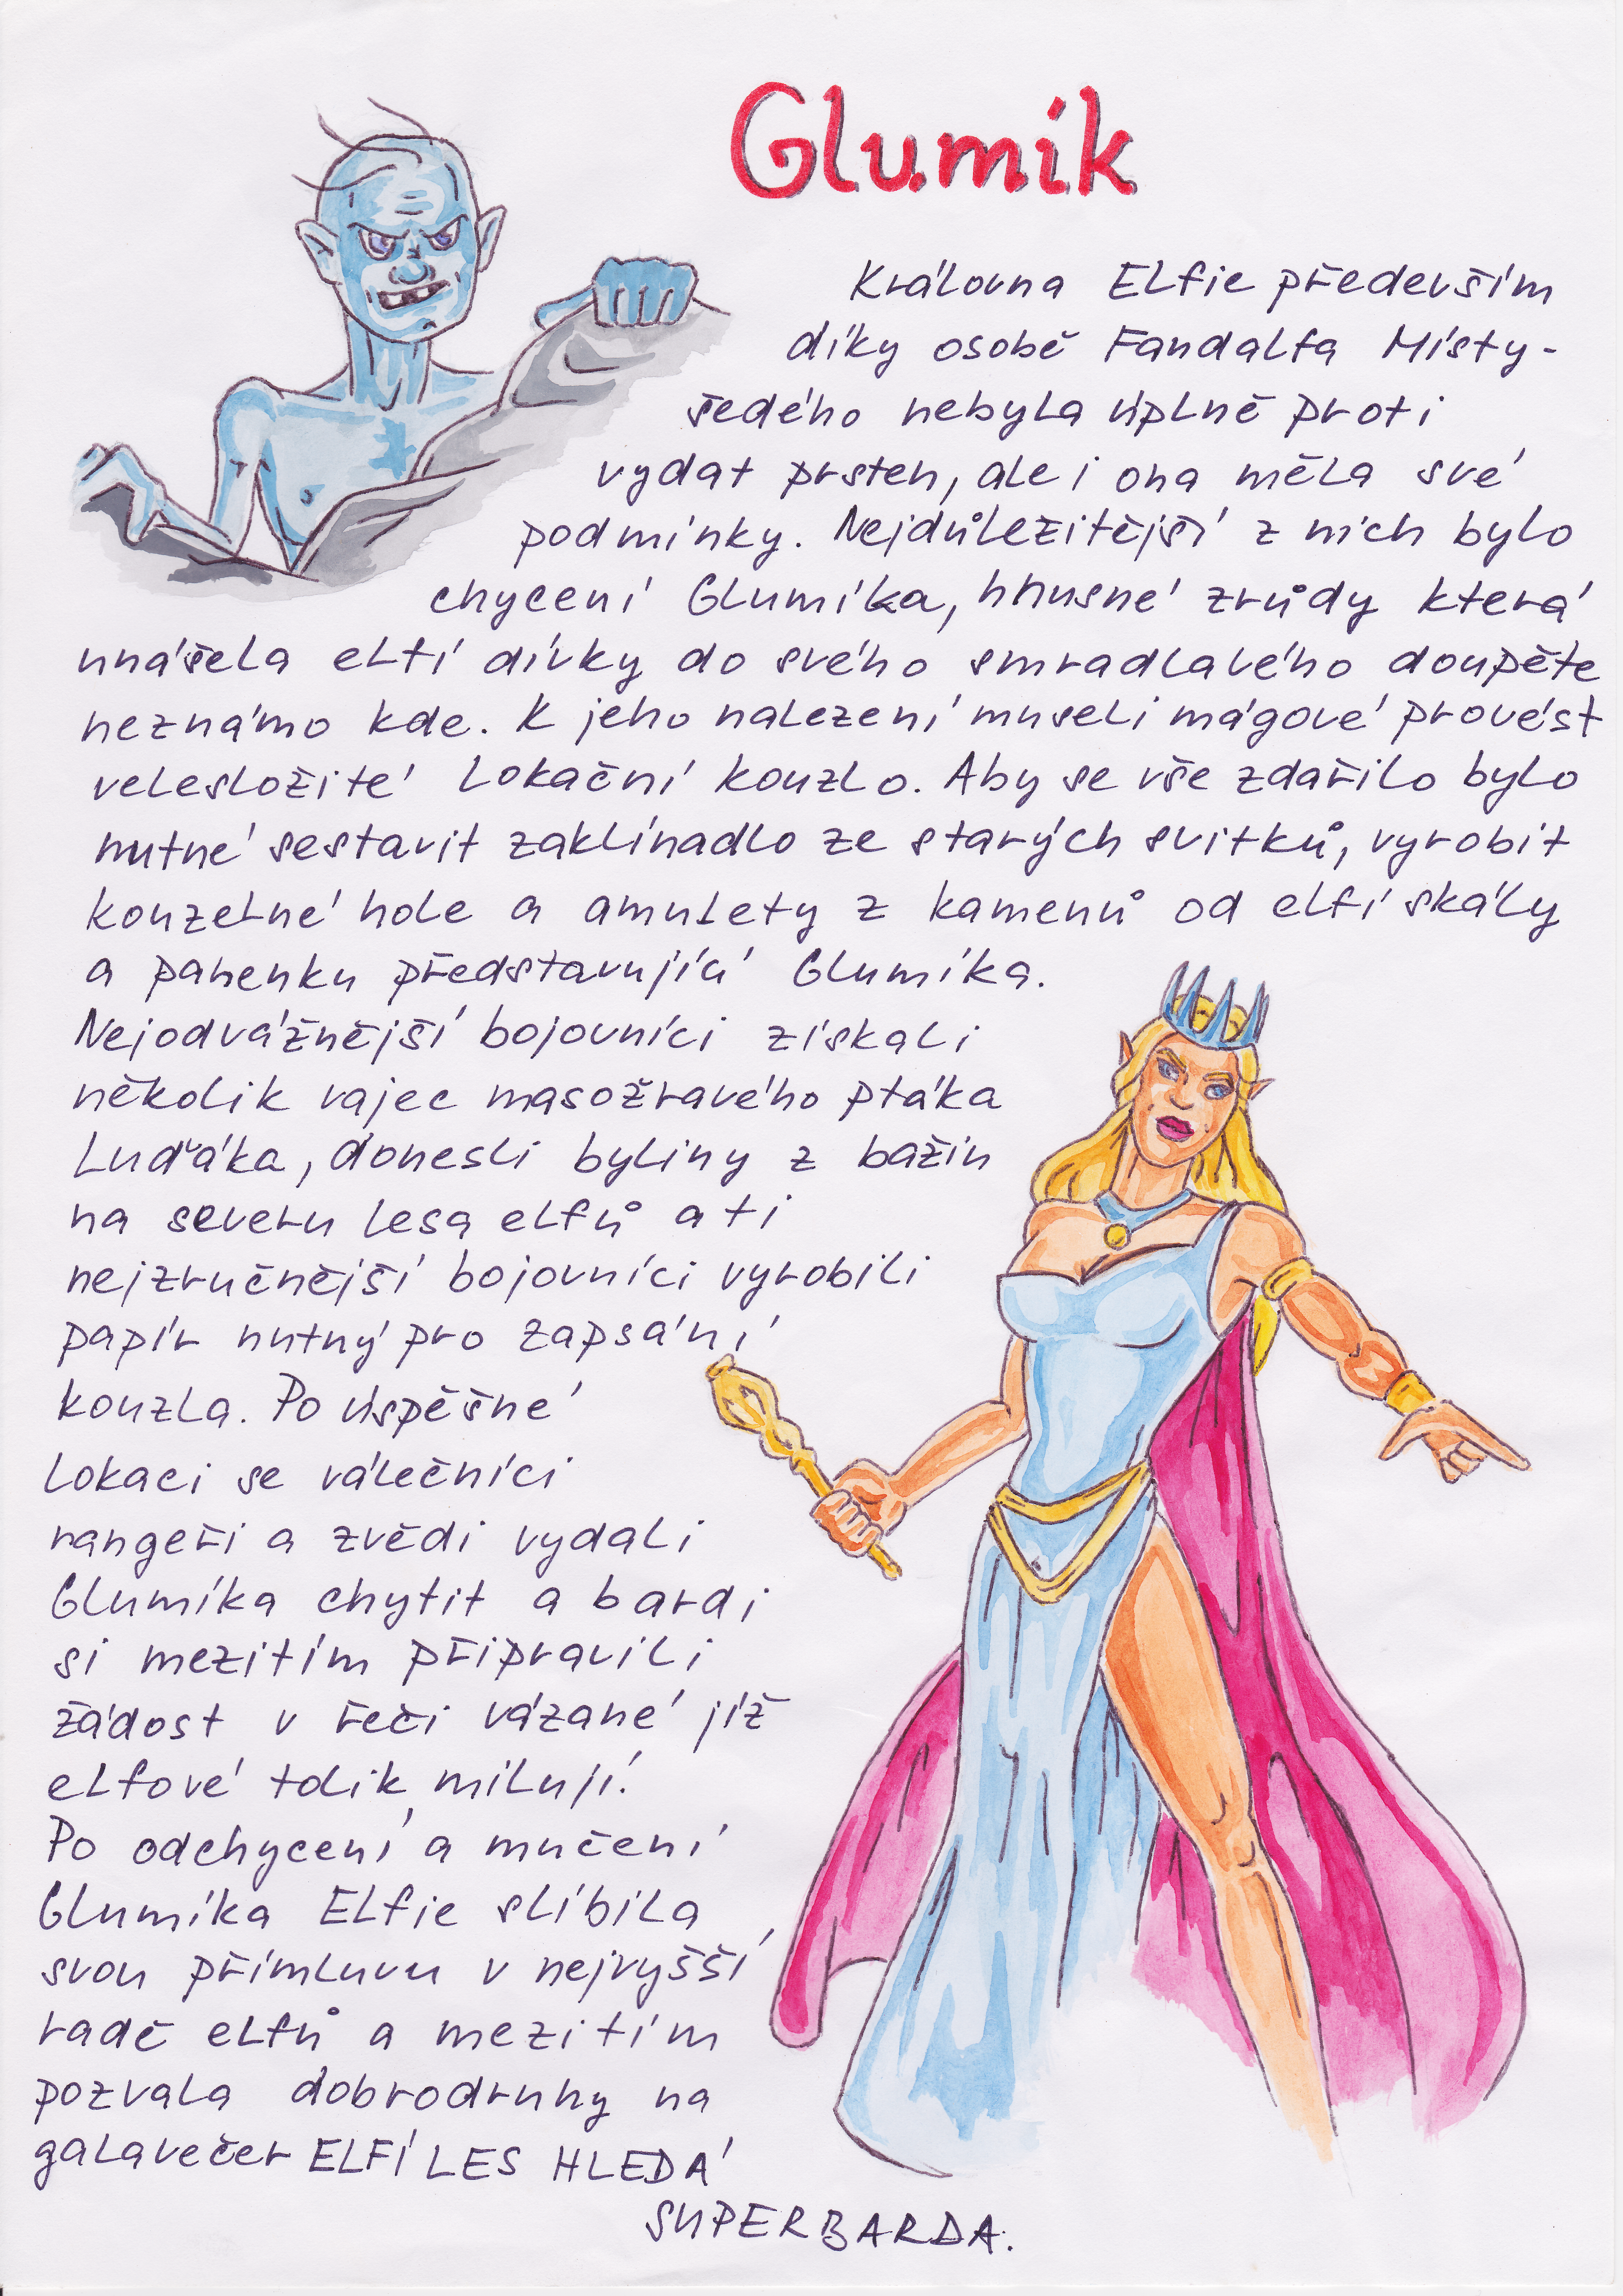 Glumík
Královna Elfie především
díky osobě Fandalfa Místy-
šedého nebyla úplně proti
vydat prsten, ale i ona měla své
podmínky. Nejdůležitější z nich bylo
chycení Glumíka, hnusné zrůdy která
unášela elfí dívky do svého smradlavého doupěte
neznámo kde. K jeho nalezení museli mágové provést
velesložité lokační kouzlo. Aby se vše zdařilo bylo
nutné sestavit zaklínadlo ze starých svitků, vyrobit
kouzelné hole a amulety z kamenů od elfí skály
a panenku představující Glumíka.
Nejodvážnější bojovníci získali
několik vajec masožravého ptáka
Luďáka, donesli byliny z bažin
na severu lesa elfů a ti
nejzručnější bojovníci vyrobili
papír nutný pro zapsání
kouzla. Po úspěšné
lokaci se válečníci
rangeři a zvědi vydali
Glumíka chytit a bardi
si mezitím připravili
žádost v řeči vázané již
elfové tolik milují.
Po odchycení a mučení
Glumíka Elfie slíbila
svou přímluvu v nejvyšší
radě elfů a mezitím
pozvala dobrodruhy na
galavečer ELFÍ LES HLEDÁ
SUPERBARDA.